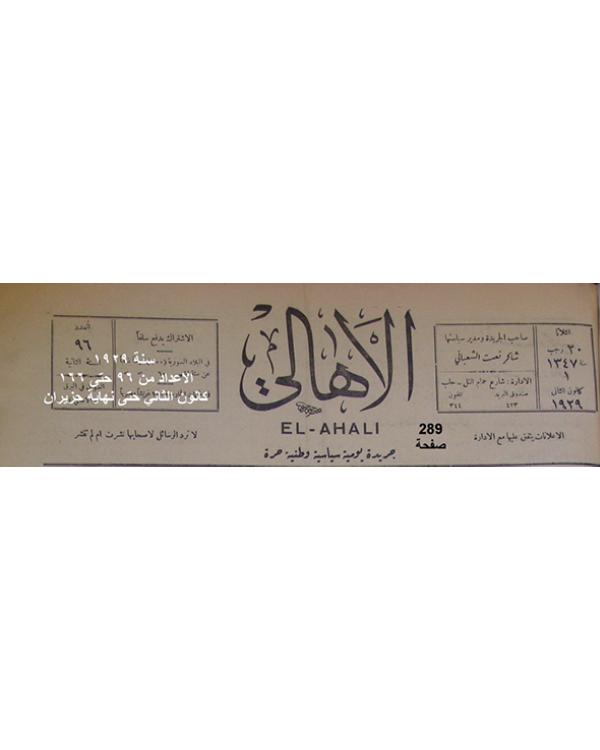 الثلاثا
٢٠ رجب
١٣٤٧
١
كانون الثاني
١٩٢٩
صاحب الجريدة ومدير سياستها
شاكر نعمت الشعباني
الادارة : شارع حمام التل - حلب
صندوق البريد تلفون
٤٢٣ ٣٤٤
الاعلانات يتفق عليها مع الادارة
الاهالي
EL-AHALI
جريدة يومية سياسية وطنية حرة
289
صفحة
الاشتراك يدفع سلفاً
في البلاد السورية
العدد
٩٦
السنة الثانية
سنة ١٩٢٩
الاعداد من ٩٦ حتى ١٦٦
كانون الثاني حتى نهاية حزيران
لا ترد الرسائل لاصحابها نشرت ام لم تنشر